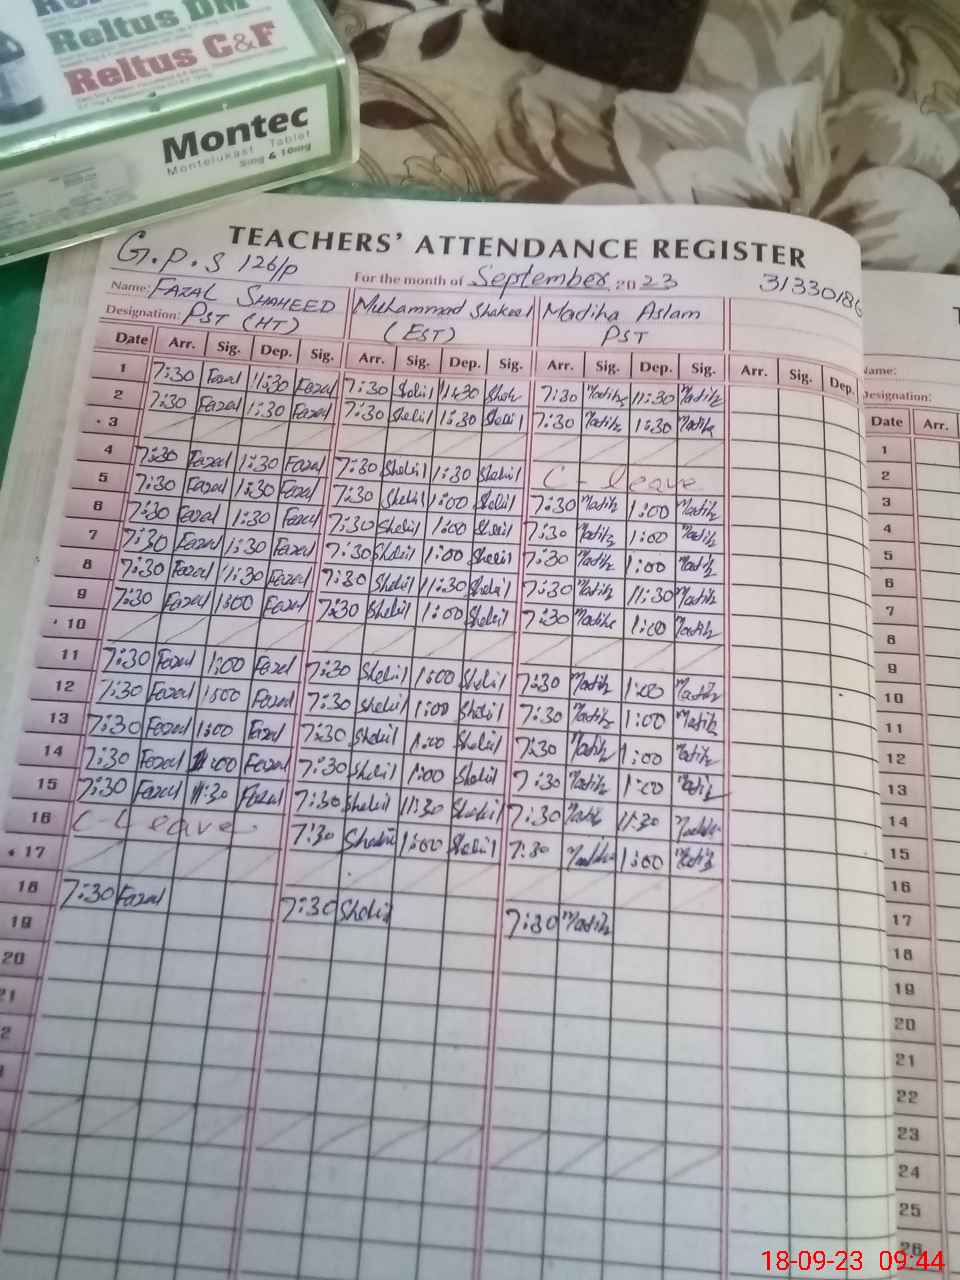 Reltus DM
Reltus C&F
Montec
Montelukast Tablet
5mg & 10mg
TEACHERS' ATTENDANCE REGISTER
G.P.S 126/P
For the month of September 2023
Name: FAZAL SHAHEED Muhammad Shakeel Madiha Aslam
Designation: PST (HT) (EST) PST
Date Arr. Sig. Dep. Sig. Arr. Sig. Dep. Sig. Arr. Sig. Dep. Sig. Arr. Sig. Dep.
1 7:30 Fazal 11:30 Fazal 7:30 Shakil 11:30 7:30 Madiha 11:30 Madiha
2 7:30 Fazal 1:30 Fazal 7:30 Shakil 1:30 Shakil 7:30 Madiha 1:30 Madiha
3
4 7:30 Fazal 1:30 Fazal 7:30 Shakil 1:30 Shakil C- leave
5 7:30 Fazal 1:30 Fazal 7:30 Shakil 1:00 Shakil 7:30 Madiha 1:00 Madiha
6 7:30 Fazal 1:30 Fazal 7:30 Shakil 1:00 Shakil 7:30 Madiha 1:00 Madiha
7 7:30 Fazal 1:30 Fazal 7:30 Shakil 1:00 Shakil 7:30 Madiha 1:00 Madiha
8 7:30 Fazal 11:30 Fazal 7:30 Shakil 11:30 Shakil 7:30 Madiha 11:30 Madiha
9 7:30 Fazal 1:00 Fazal 7:30 Shakil 1:00 Shakil 7:30 Madiha 1:00 Madiha
10
11 7:30 Fazal 1:00 Fazal 7:30 Shakil 1:00 Shakil 7:30 Madiha 1:00 Madiha
12 7:30 Fazal 1:00 Fazal 7:30 Shakil 1:00 Shakil 7:30 Madiha 1:00 Madiha
13 7:30 Fazal 1:00 Fazal 7:30 Shakil 1:00 Shakil 7:30 Madiha 1:00 Madiha
14 7:30 Fazal 1:00 Fazal 7:30 Shakil 1:00 Shakil 7:30 Madiha 1:00 Madiha
15 7:30 Fazal 11:30 Fazal 7:30 Shakil 11:30 Shakil 7:30 Madiha 11:30 Madiha
16 C-Leave 7:30 Shakil 1:00 Shakil 7:30 Madiha 1:00 Madiha
17
18 7:30 Fazal 7:30 Shakil 7:30 Madiha
19
20
21
Name:
Designation:
Date Arr.
1
2
3
4
5
6
7
8
9
10
11
12
13
14
15
16
17
18
19
20
21
22
23
24
25
26
18-09-23 09:44